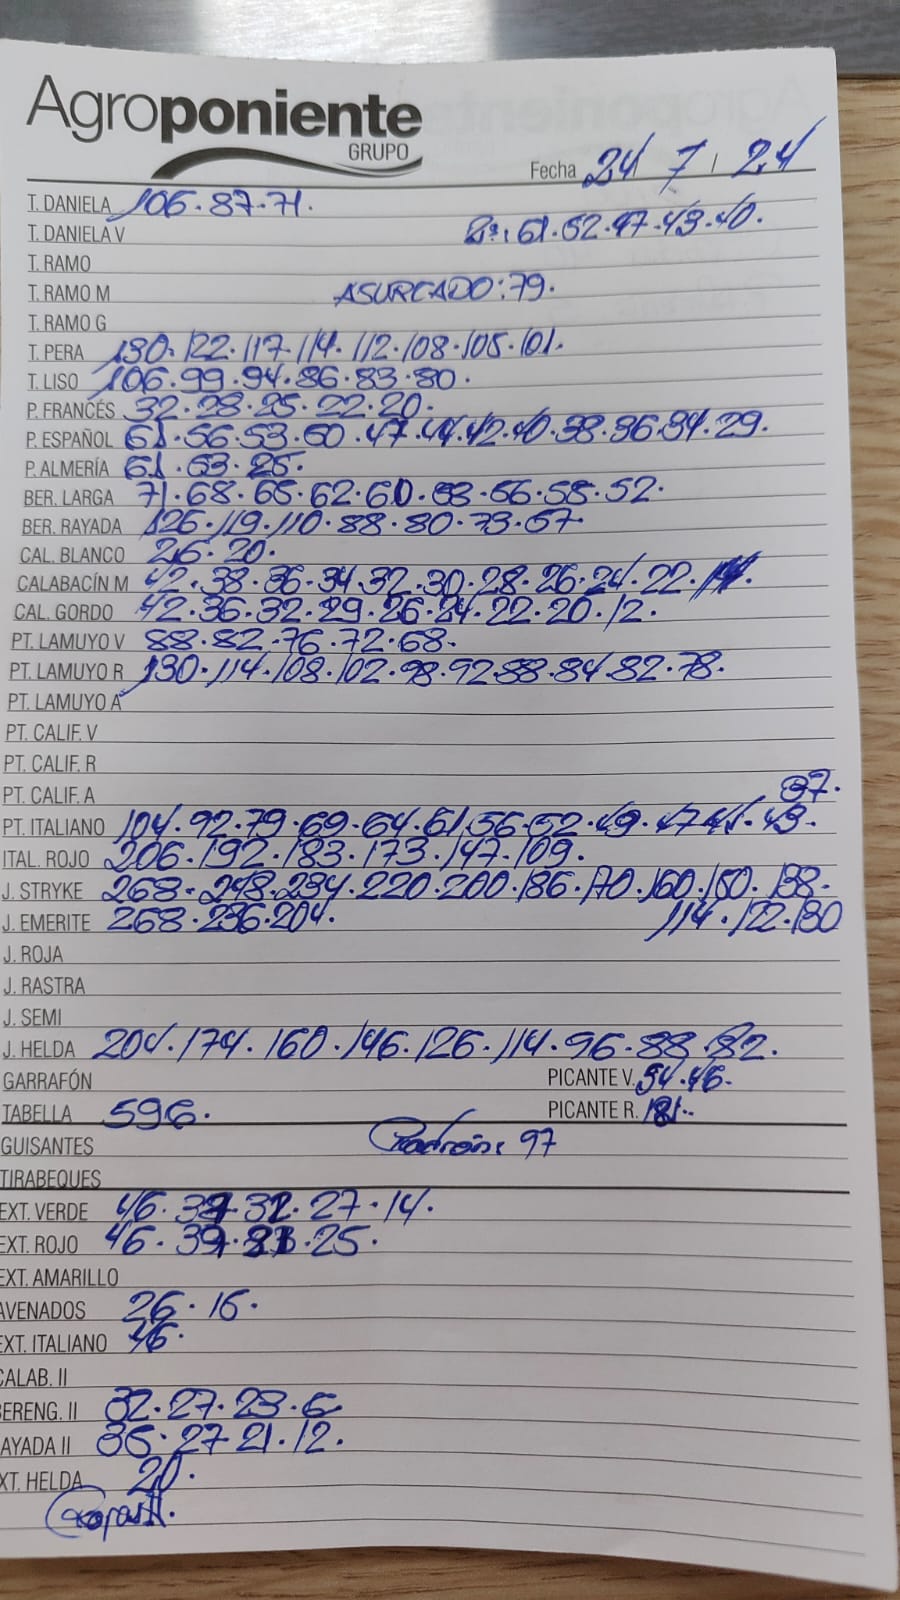 Agroponiente
GRUPO
Fecha 24/ 7 / 24
T. DANELA 106.87.71.
T. DANIELA V 2ª: 61.52.47.43.40.
T. RAMO
T. RAMO M ASURCADO: 79.
T. RAMO G
T. PERA 130.122.117.114.112.108.105.101.
T. LISO 106.99.94.86.83.80.
P. FRANCÉS 32.28.25.22.20.
P. ESPAÑOL 61.56.53.50.47.44.42.40.38.36.34.29.
P. ALMERÍA 61.53.25.
BER. LARGA 71.68.65.62.60.58.56.55.52.
BER. RAYADA 126.119.110.88.80.73.57.
CAL. BLANCO 26.20.
CALABACÍN M 42.38.36.34.32.30.28.26.24.22.
CAL. GORDO 42.36.32.29.26.24.22.20.12.
PT. LAMUYO V 88.82.76.72.68.
PT. LAMUYO R 130.114.108.102.98.92.88.84.82.78.
PT. LAMUYO A
PT. CALIF. V
PT. CALIF. R
PT. CALIF. A 37.
PT. ITALIANO 104.92.79.69.64.61.56.52.49.47.45.43.
ITAL. ROJO 206.192.183.173.147.109.
J. STRYKE 268.248.234.220.200.186.170.160.150.138.
J. EMERITE 268.236.204. 114.122.130
J. ROJA
J. RASTRA
J. SEMI
J. HELDA 204.174.160.146.126.114.96.88.82.
GARRAFÓN PICANTE V. 54.46.
TABELLA 596. PICANTE R. 181.
GUISANTES Padrón: 97
TIRABEQUES
EXT. VERDE 46. 32.27.14.
EXT. ROJO 46. 25.
EXT. AMARILLO
AVENADOS 26.16.
EXT. ITALIANO 46.
CALAB. II
BERENG. II 32.27.23.6
AYADA II 36.27.21.12.
XT. HELDA 20.